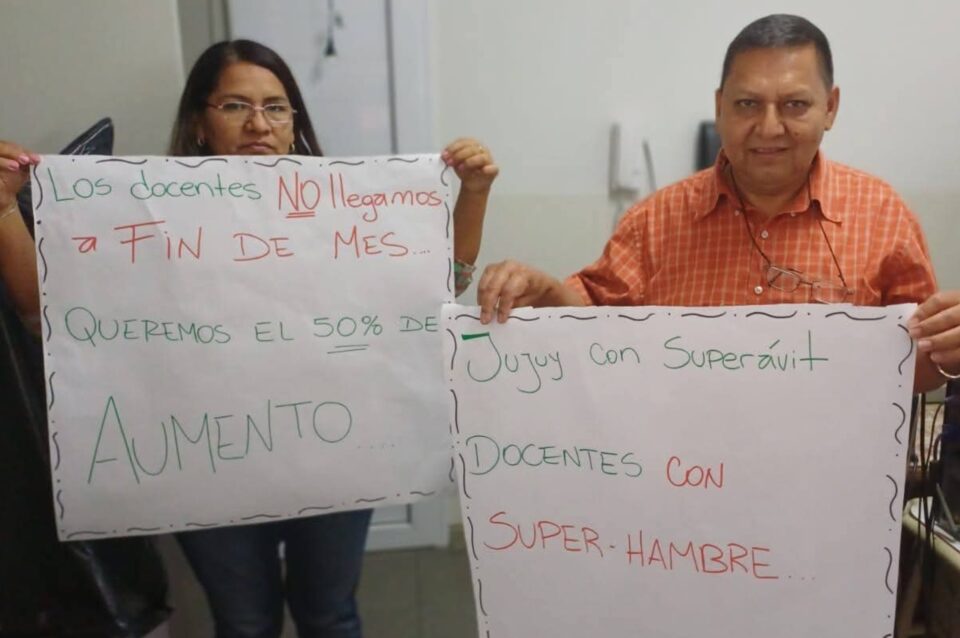 Los docentes NO llegamos
a FiN DE MES...
QUEREMOS EL 50% DE
AUMENTO....
Jujuy con Superávit
DOCENTES CON
SUPER-HAMBRE...